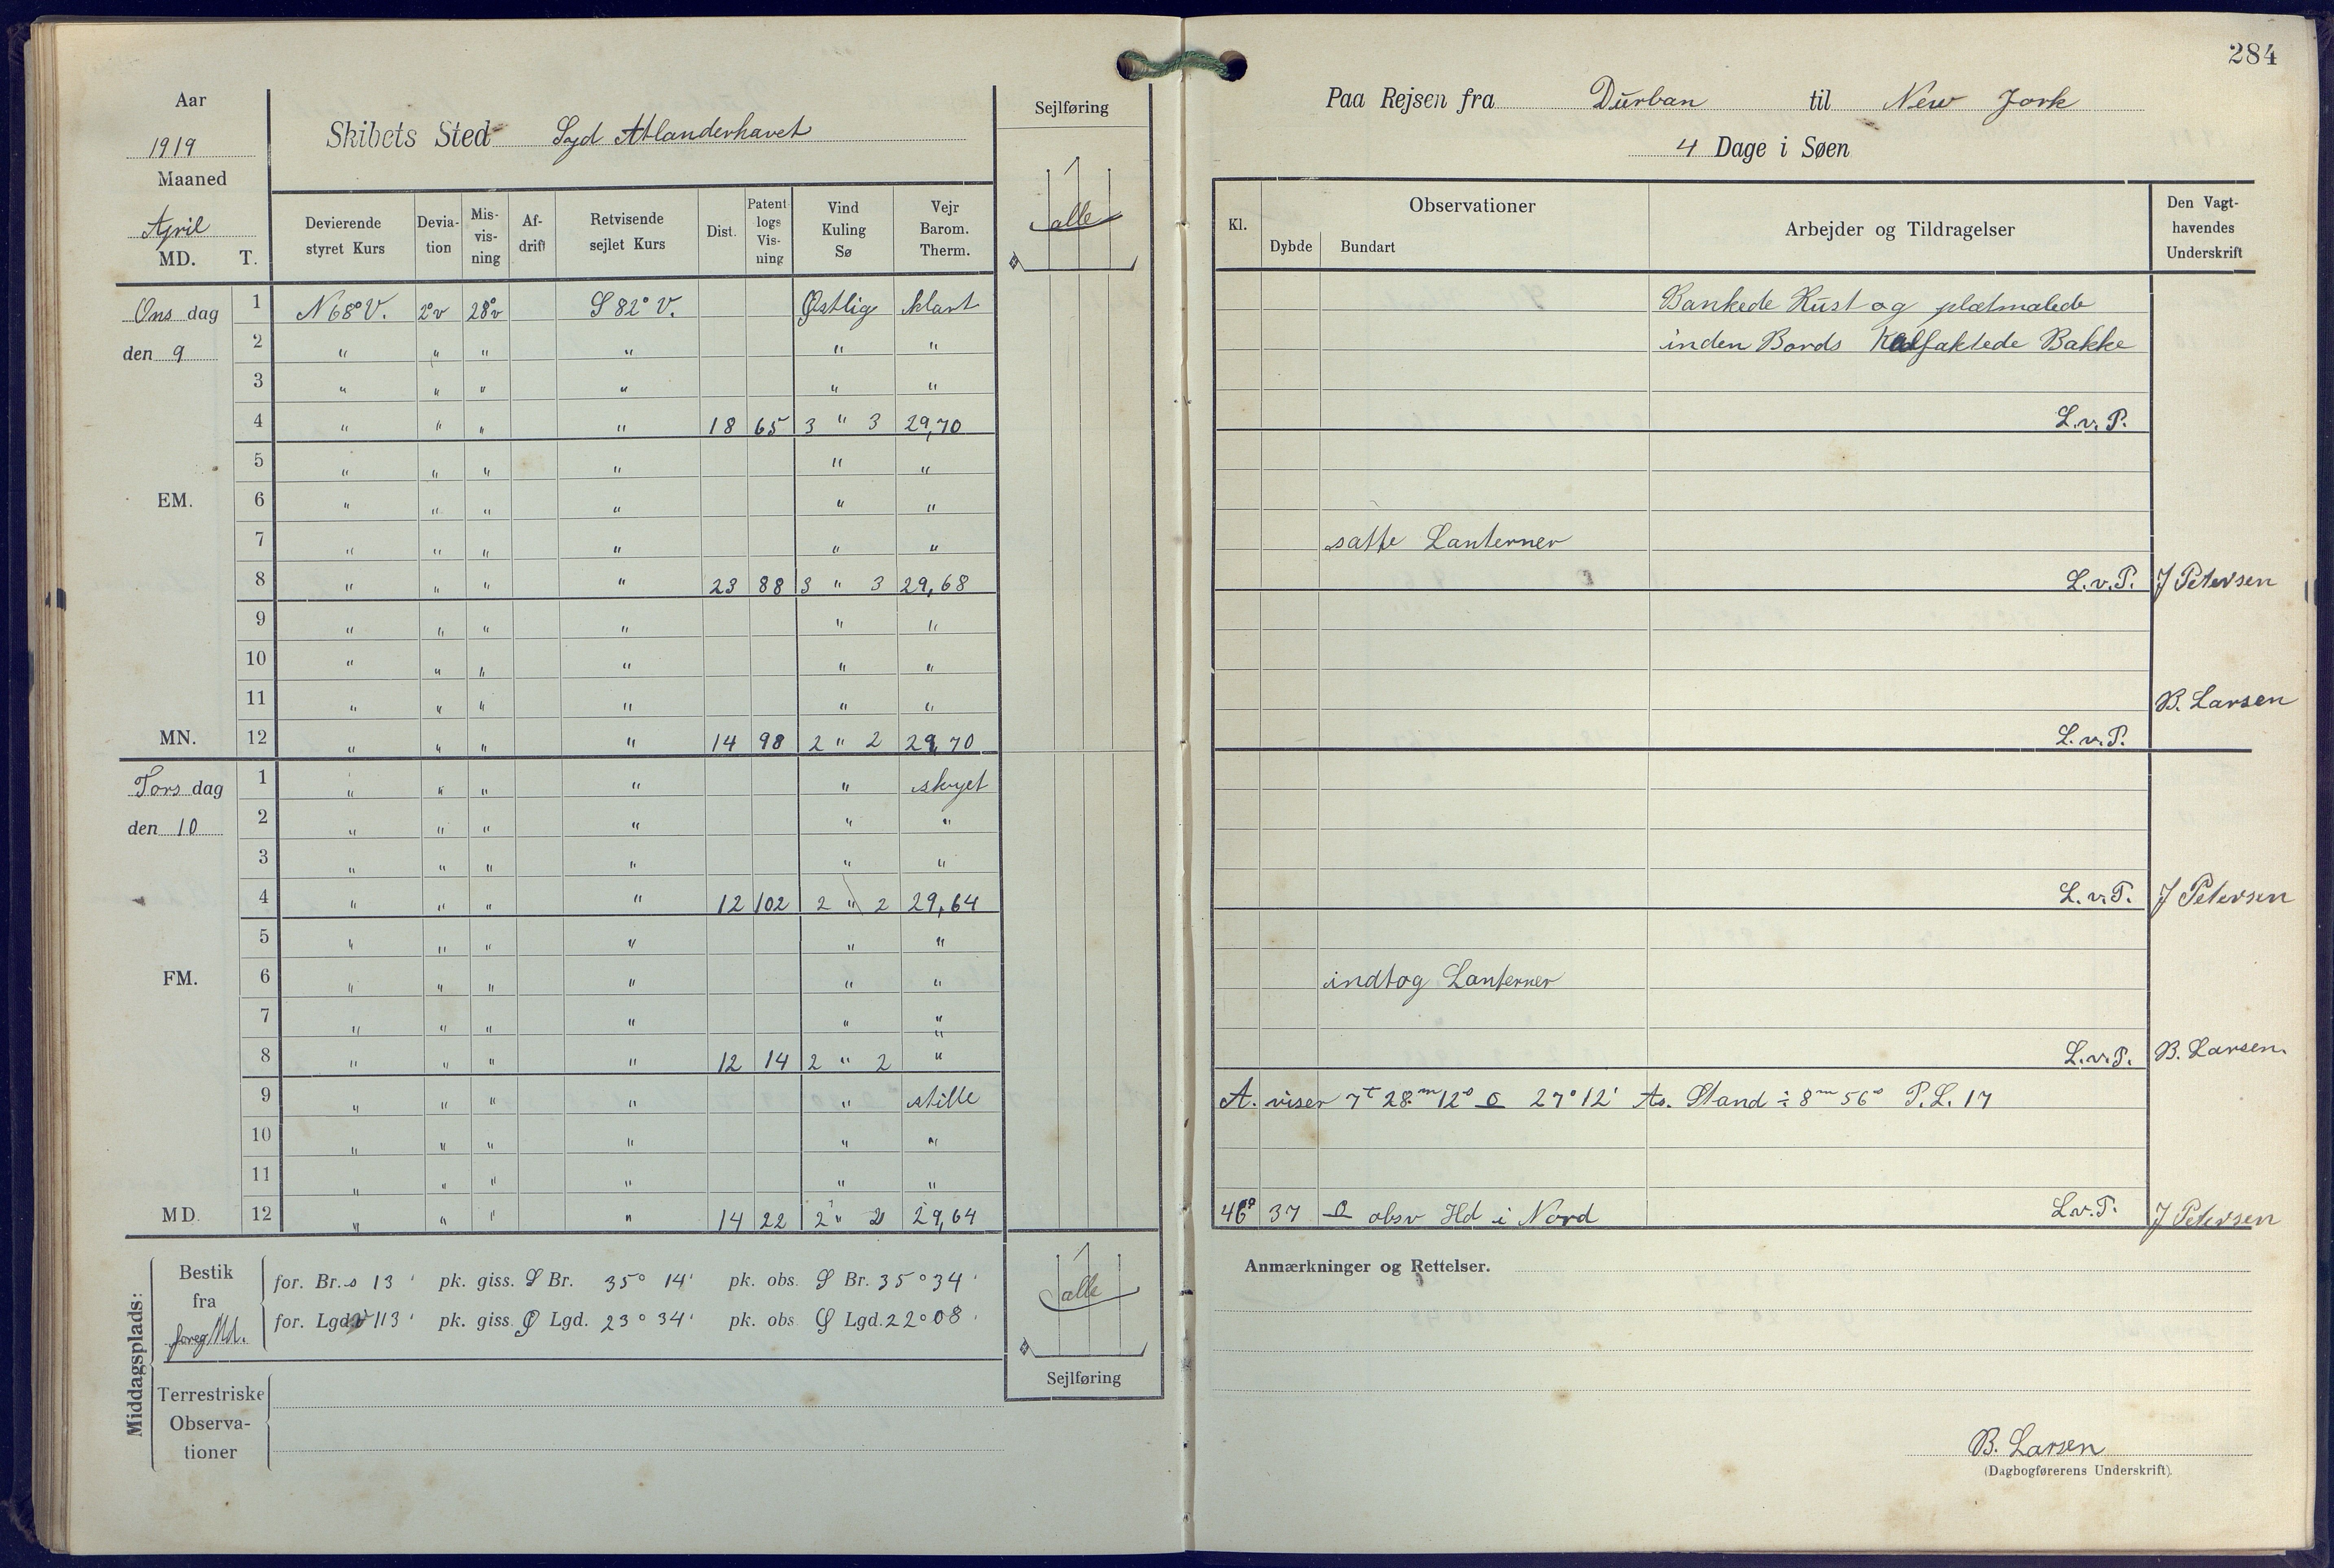 284
Aar
1919
Maaned
April
MD. T.
Skibets Sted Syd Atlanderhavet
Sejlføring
alle
Devierende styret Kurs | Devia-tion | Mis-vis-ning | Af-drift | Retvisende sejlet Kurs | Dist. | Patent logs Vis-ning | Vind Kuling Sø | Vejr Barom. Therm.
Ons dag 1 N 68° V. 2°v 28°v S 82° V. Østlig klart
den 9 2 " " " " " "
3 " " " " " "
4 " " " " 18 65 3 " 3 29,70
5 " " " " " "
EM. 6 " " " " " "
7 " " " " " "
8 " " " " 23 88 3 " 3 29,68
9 " " " " " "
10 " " " " " "
11 " " " " " "
MN. 12 " " " " 14 98 2 " 2 29,70
Tors dag 1 " " " " " skyet
den 10 2 " " " " " "
3 " " " " " "
4 " " " " 12 102 2 " 2 29,64
5 " " " " " "
FM. 6 " " " " " "
7 " " " " " "
8 " " " " 12 14 2 " 2 "
9 " " " " " stille
10 " " " " " "
11 " " " " " "
MD. 12 " " " " 14 22 2 " 2 29,64
Middagsplads:
Bestik fra foreg Md.
for. Br. s 13' pk. giss. S Br. 35° 14' pk. obs. S Br. 35° 34'
for. Lgd. v 113' pk. giss. Ø Lgd. 23° 34' pk. obs Ø Lgd. 22° 08'
Terrestriske
Observa-
tioner
alle
Sejlføring
Paa Rejsen fra Durban til New Jork
4 Dage i Søen
Kl. | Observationer | Dybde | Bundart | Arbejder og Tildragelser | Den Vagt-havendes Underskrift
Bankede Rust og pletmalede
inden Bords Kalfaktede Bakke
L.v.P.
satte Lanterner
L.v.P. J Petersen
B. Larsen
L.v.P.
L.v.P. J Petersen
indtog Lanterner
L.v.P. B. Larsen.
A. viser 7t 28m 12s 27° 12' As. Stand ÷ 8m 56s P.L. 17
46° 37 obsv Hd i Nord L.v.P. J Petersen
Anmærkninger og Rettelser.
B. Larsen
(Dagbogførerens Underskrift).